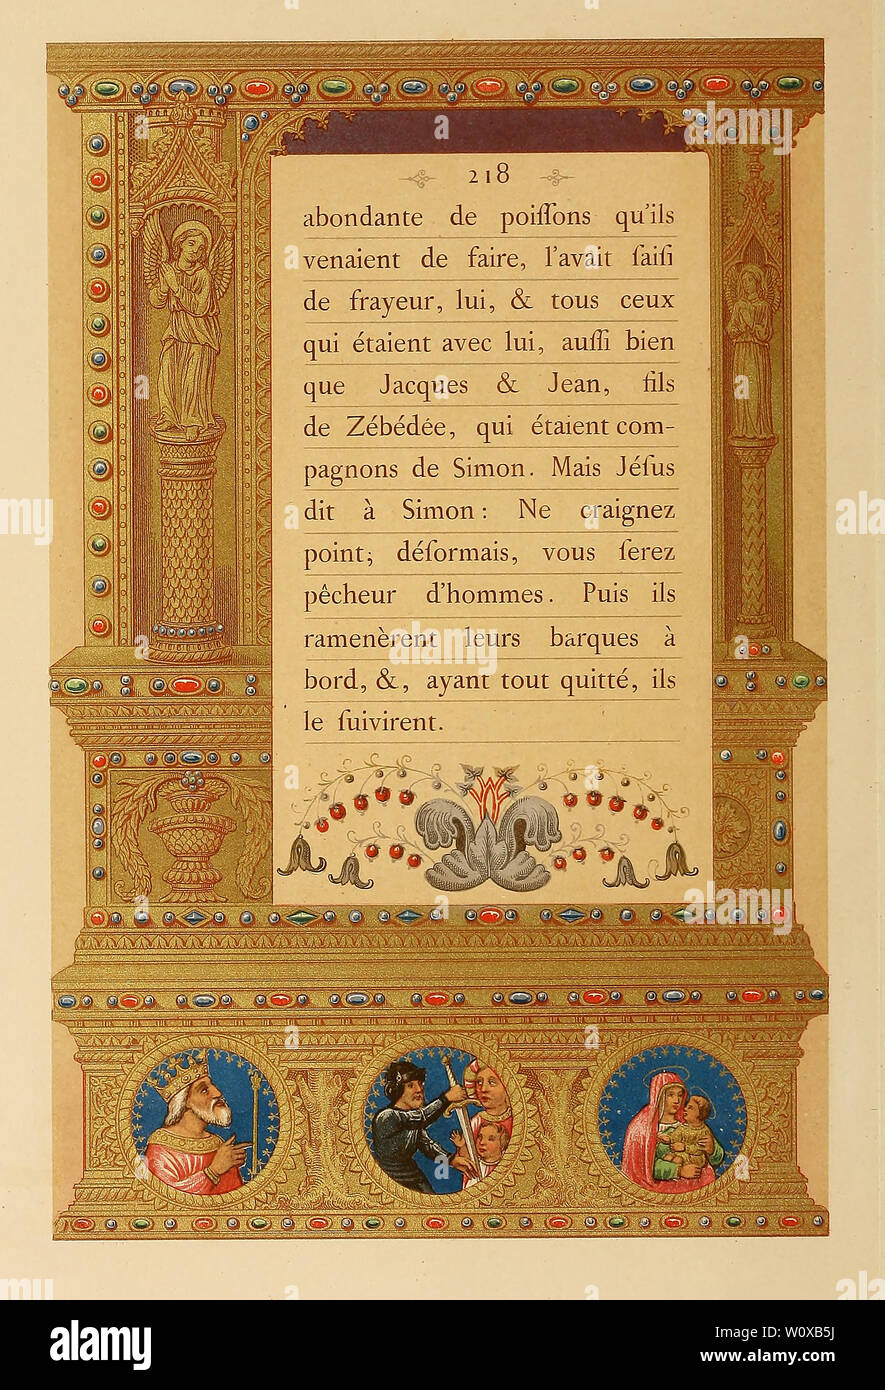 218
abondante de poiſſons qu'ils
venaient de faire, l'avait ſaiſi
de frayeur, lui, & tous ceux
qui étaient avec lui, auſſi bien
que Jacques & Jean, fils
de Zébédée, qui étaient com-
pagnons de Simon. Mais Jéſus
dit à Simon: Ne craignez
point; déſormais, vous ſerez
pêcheur d'hommes. Puis ils
ramenèrent leurs barques à
bord, &, ayant tout quitté, ils
le ſuivirent.
alamy
Image ID: W0XB5J
www.alamy.com